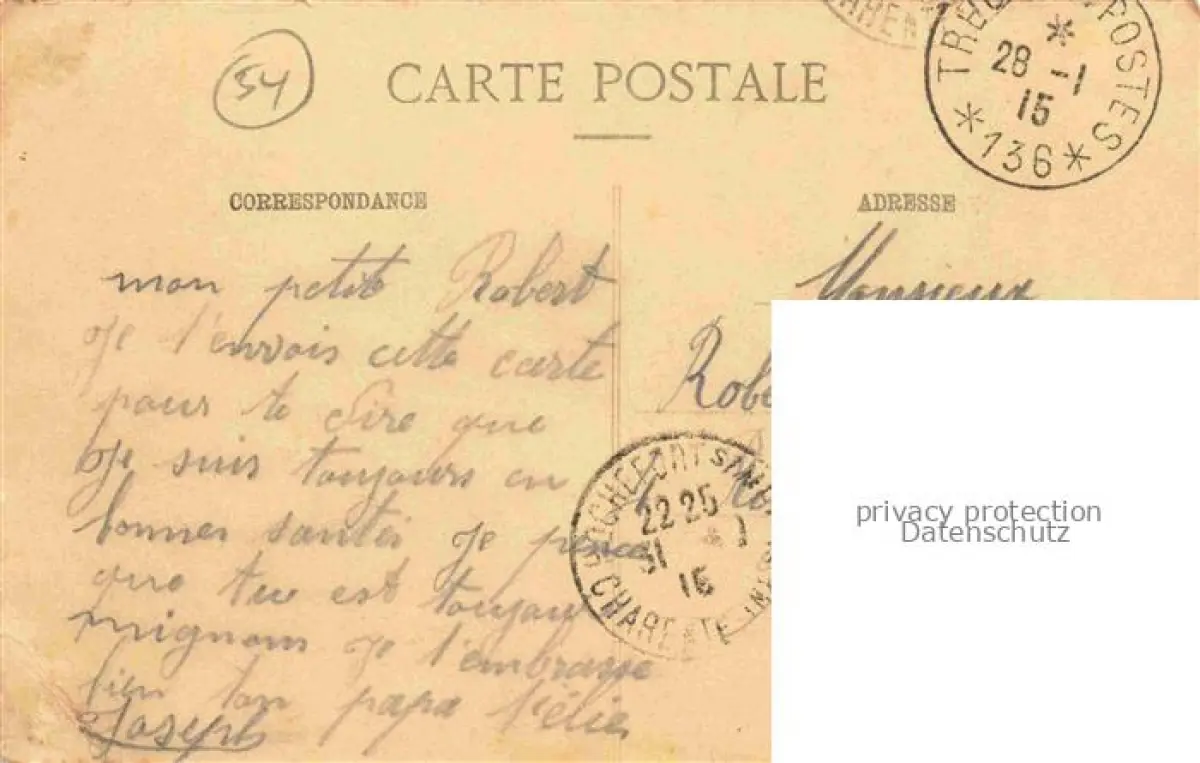 54
CARTE POSTALE
TRÉSOR POSTES
28 -1
15
*136*
CORRESPONDANCE
ADRESSE
mon petit Robert
Je t'envois cette carte
pour te dire que
Je suis toujours en
bonnes santer Je pence
que tu est toujour
mignom Je t'embrasse
bien ton papa
Joseph
Monsieur
Rob
ROCHEFORT
22 25
31
15
CHARENTE
privacy protection
Datenschutz